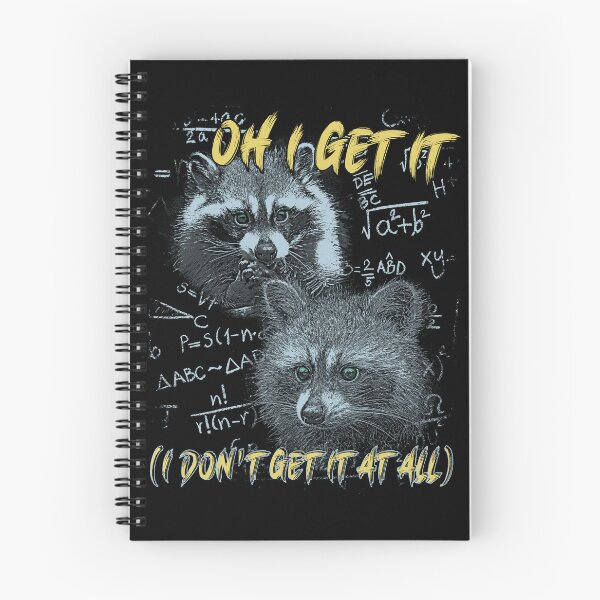 OH I GET IT
2a
DE
BC
√a²+b²
H
XY
=2/5 AB̂D
C
P=S(1-n·
△ABC~△AB
n!
r!(n-r)
(I DON'T GET IT AT ALL)